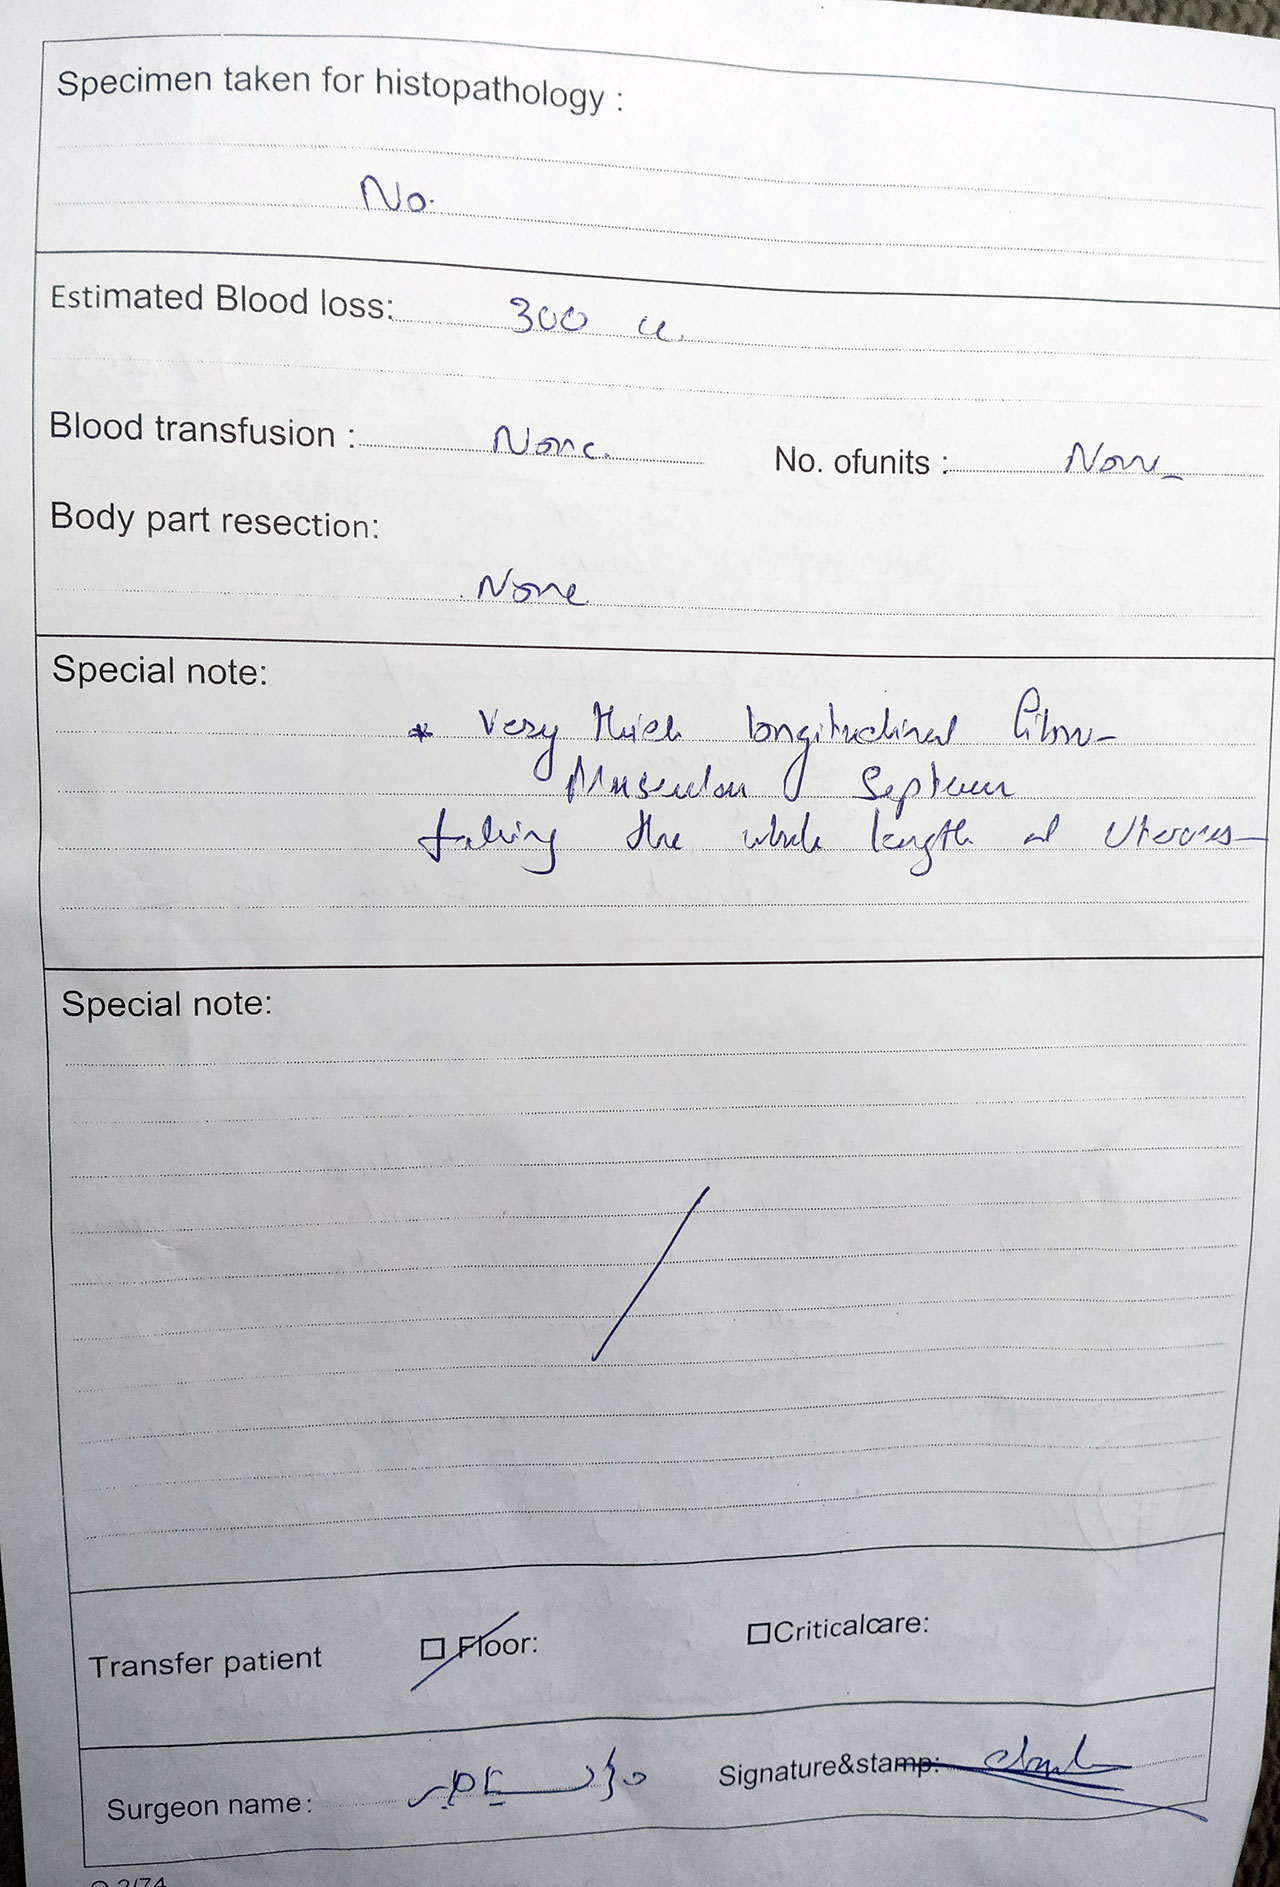 Specimen taken for histopathology :
No.
Estimated Blood loss: 300 cc.
Blood transfusion : None. No. ofunits : None
Body part resection:
None
Special note:
* Very thick longitudinal fibro-
Muscular Septum
taking the whole length of Uterus
Special note:
Transfer patient Floor: Criticalcare:
Surgeon name: Signature&stamp: